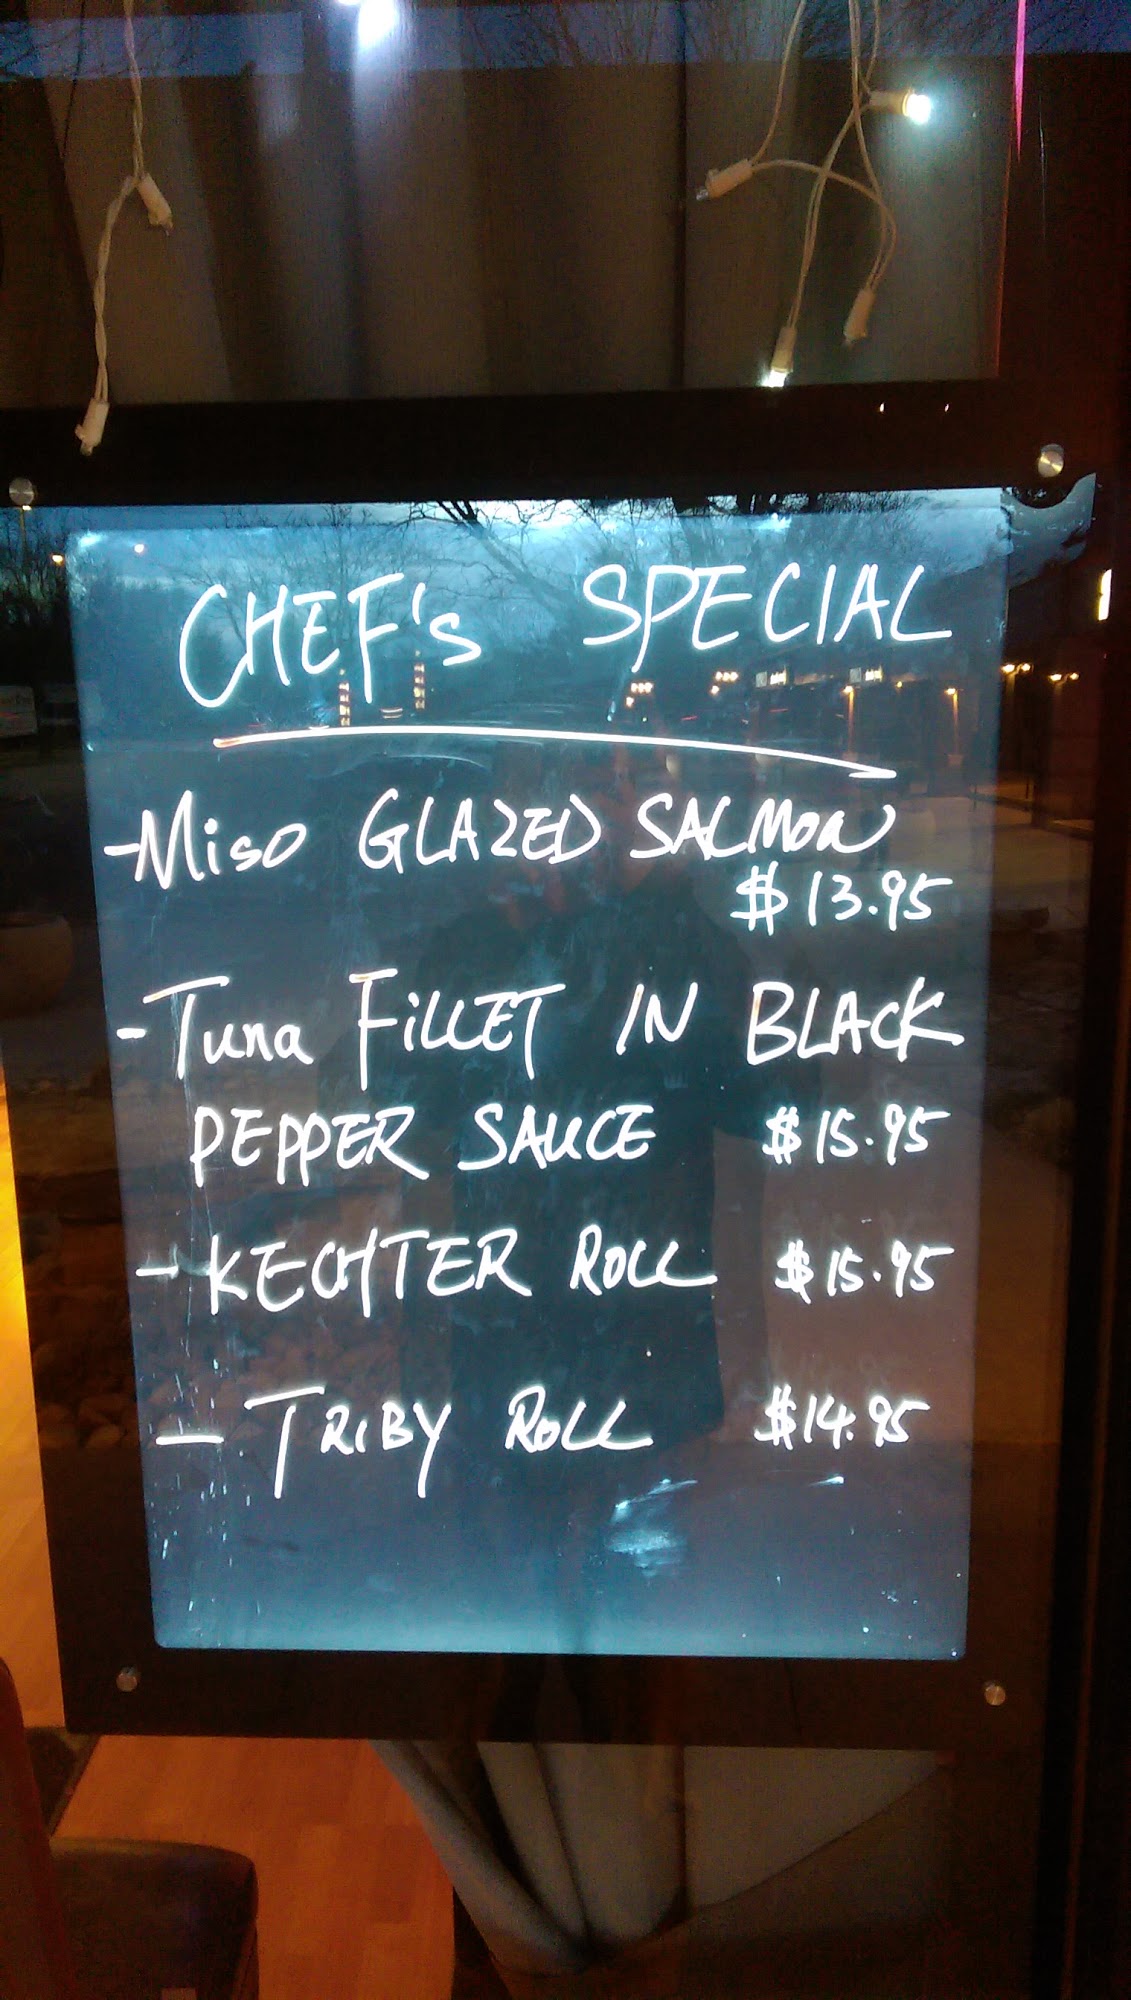 CHEF's SPECIAL
-Miso GLAZED SALMON
$13.95
-Tuna FiLLET IN BLACK
PEPPER SAUCE $15.95
-KECHTER ROLL $15.95
- TRIBY ROLL $14.95